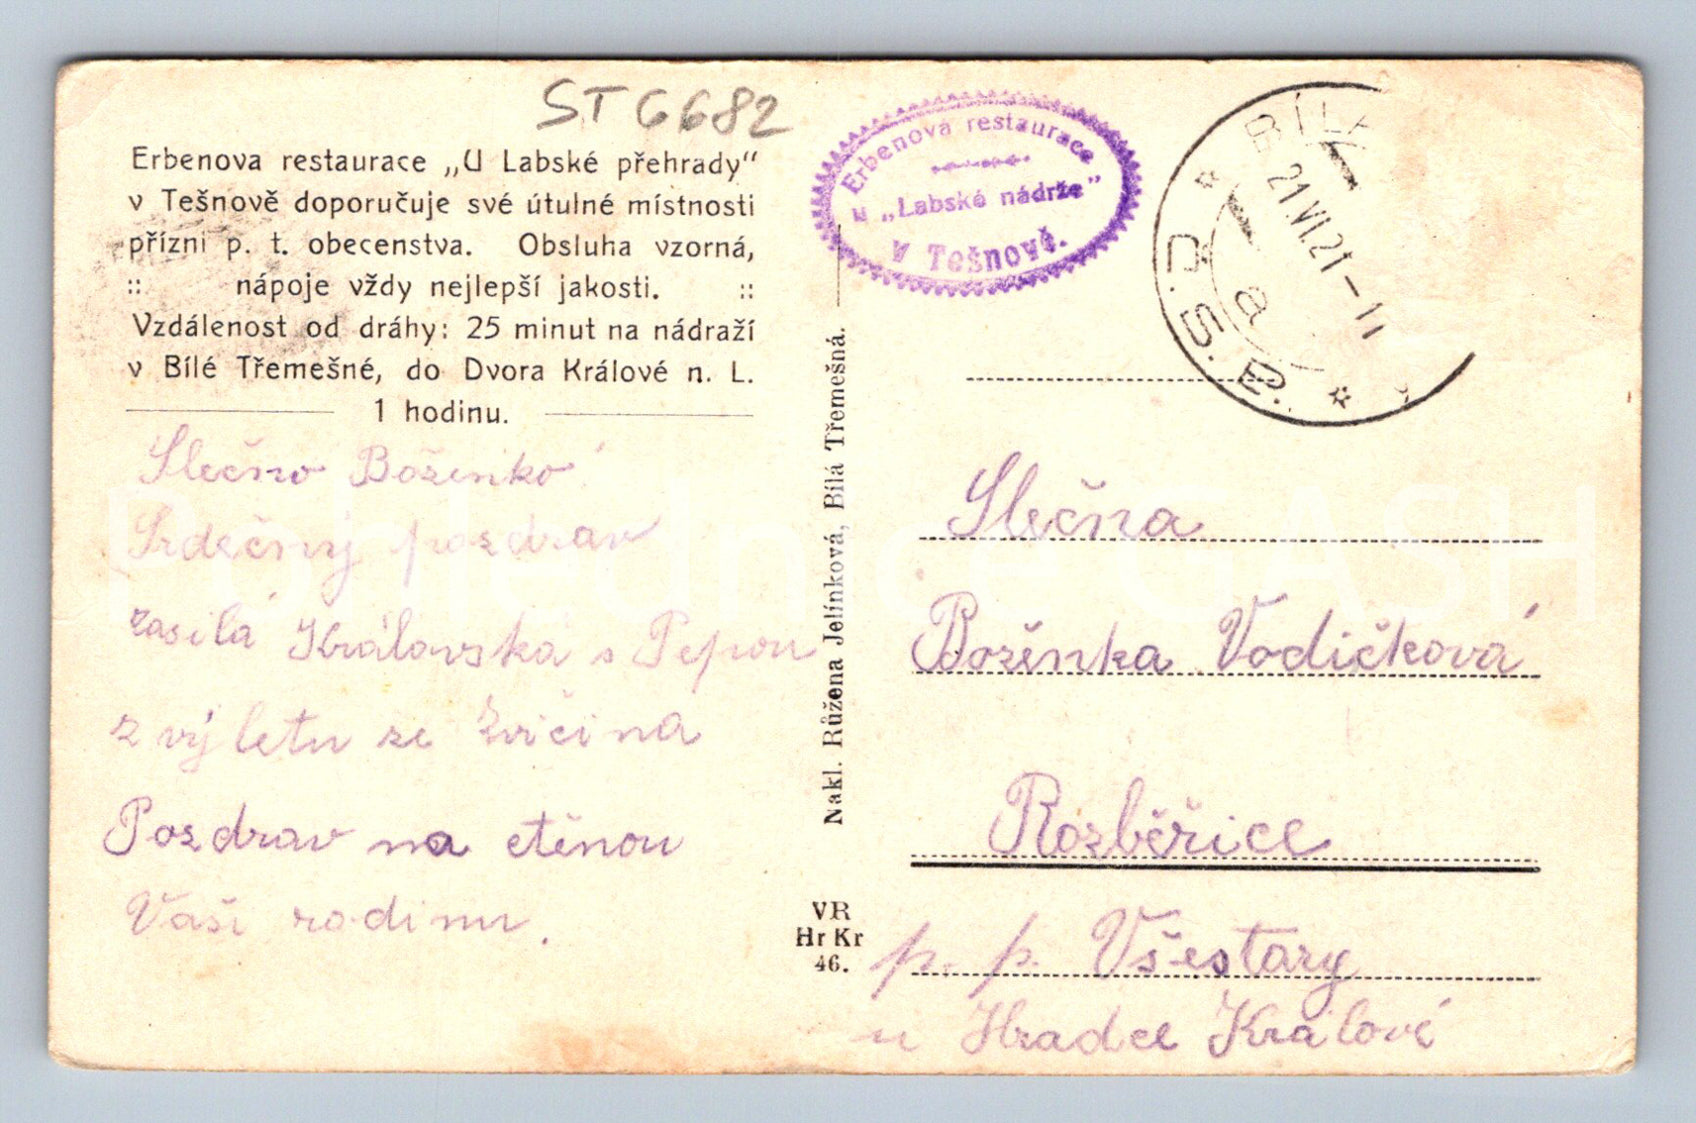 ST 6682
Erbenova restaurace „U Labské přehrady“
v Tešnově doporučuje své útulné místnosti
přízni p. t. obecenstva. Obsluha vzorná,
:: nápoje vždy nejlepší jakosti. ::
Vzdálenost od dráhy: 25 minut na nádraží
v Bílé Třemešné, do Dvora Králové n. L.
1 hodinu.
Slečno Boženko!
Srdečný pozdrav
zasílá Královská s Pepou
z výletu ze Zvičina
Pozdrav na ctěnou
Vaši rodinu.
Nakl. Růžena Jelínková, Bílá Třemešná.
VR
Hr Kr
46.
Erbenova restaurace
u „Labské nádrže”
v Tešnově.
21.VI.21-11
a
Slečna
Boženka Vodičková
Rozběřice
p. p. Všestary
u Hradce Králové
Pohlednice GASH